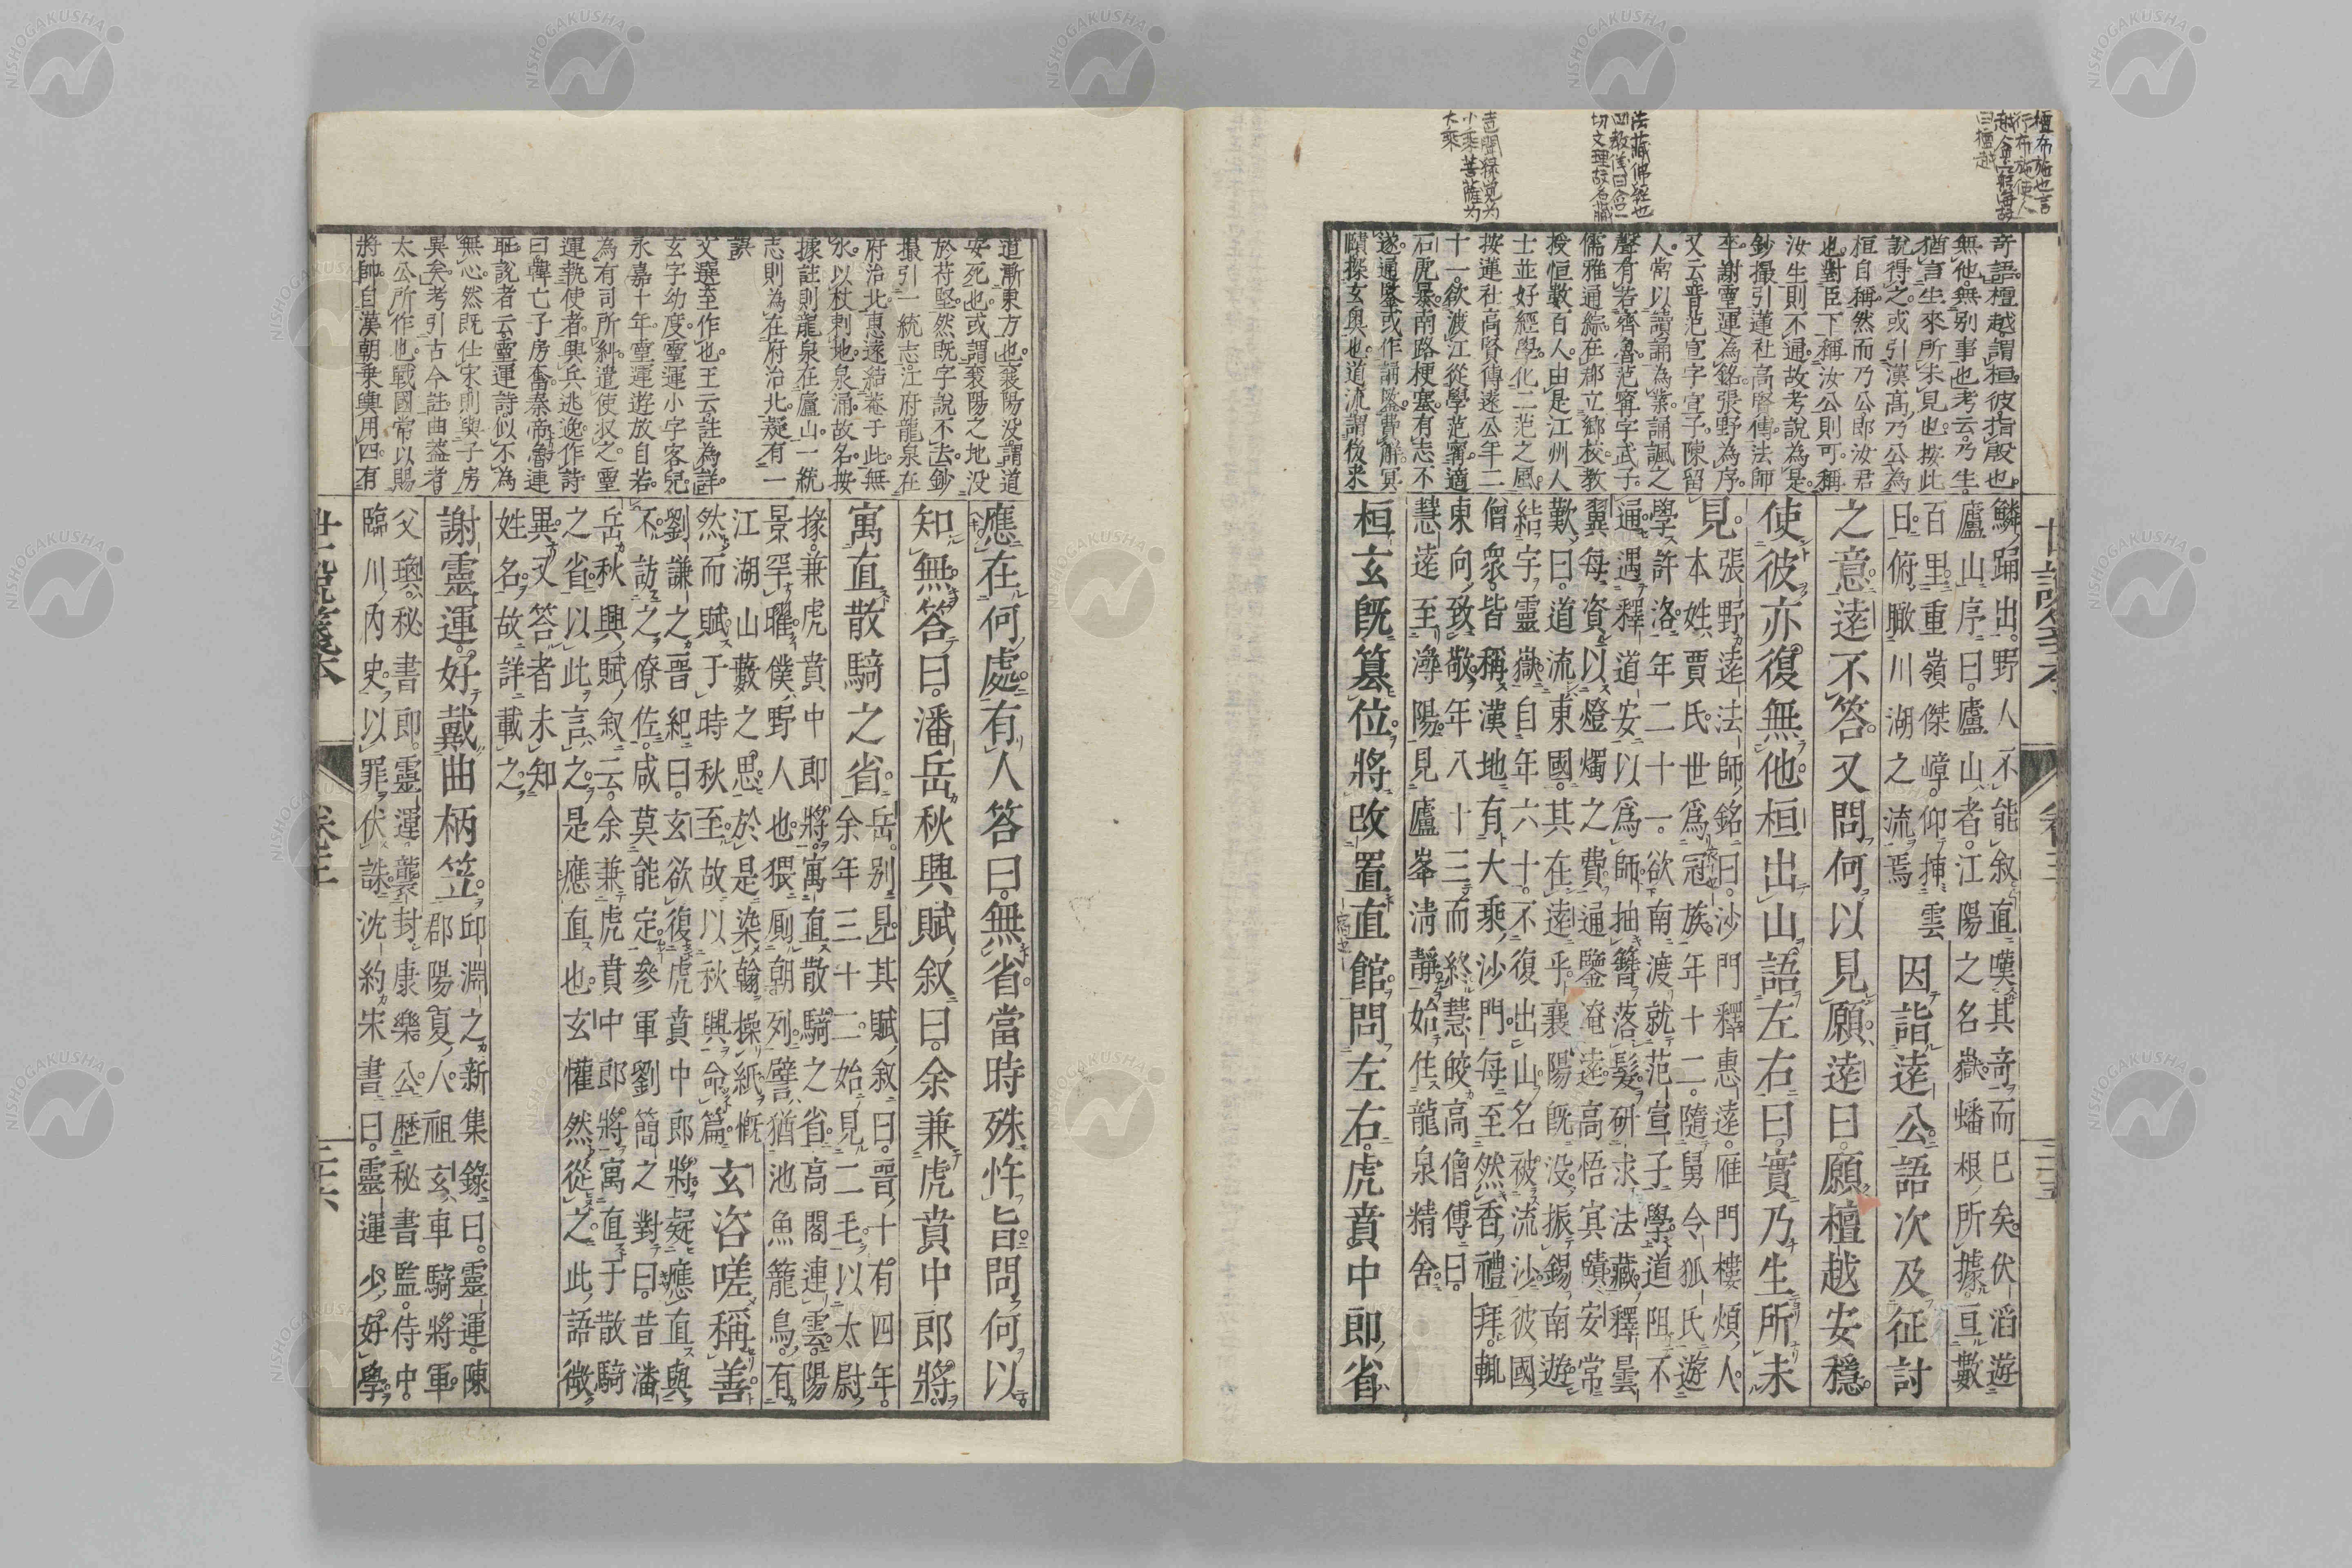 檀布施也言
行布施使人
越貧窮海故
曰檀越
法藏佛經也
四教儀曰含一
切文理故名藏
声聞縁覚为
小乘菩薩为
大乘
奇語檀越謂桓彼指殷也
無他無別事也考云乃生
猶言生來所未見也按此
說得之或引漢高乃公為
桓自稱然而乃公郎汝君
也對臣下稱汝公則可稱
汝生則不通故考說為是
鈔撮引蓮社高賢傳法師
卒謝靈運為銘張野為序
又云晉范宣字宣子陳留
人常以讀誦為業誦諷之
聲有若齊魯范甯字武子
儒雅通綜在郡立鄉校教
授恒數百人由是江州人
士並好經學化二范之風
按蓮社高賢傳遠公年二
十一欲渡江從學范甯適
石虎暴南路梗塞有志不
遂通鑒或作誦鑒費解冥
賾探玄奥也道流謂後来
鱗踊出野人不能叙直嘆其奇而已矣伏滔遊
廬山序曰廬山者江陽之名嶽蟠根所據亘數
百里重嶺傑嶂仰挿雲
日俯瞰川湖之流焉
因詣遠公語次及征討
之意遠不答又問何以見願遠曰願檀越安穩
使彼亦復無他桓出山語左右曰實乃生所未
見
張野遠法師銘曰沙門釋惠遠雁門樓煩人
本姓賈氏世爲冠族年十二隨舅令狐氏遊
學許洛年二十一欲南渡就范宣子學道阻不
通遇釋道安以爲師抽簪落髮研求法藏釋曇
翼每資以燈燭之費通鑒淹遠高悟冥賾安常
歎曰道流東國其在遠乎襄陽既没振錫南遊
結宇靈嶽自年六十不復出山名被流沙彼國
僧衆皆稱漢地有大乘沙門每至然香禮拜輒
東向致敬年八十三而終慧皎高僧傳曰
慧遠至潯陽見廬峯淸靜始住龍泉精舍
桓玄既簒位將改置直館問左右虎賁中郎省
世說箋本
卷三
三十五
道漸東方也襄陽没謂道
安死也或謂襄陽之地没
於苻堅然既字說不去鈔
撮引一統志江府龍泉在
府治北惠遠結菴于此無
水以杖刺地泉涌故名按
據註則龍泉在廬山一統
志則為在府治北疑有一
誤
文選至作也王云註為詳
玄字幼度靈運小字客兒
永嘉十年靈運遊放自若
為有司所糾遣使収之靈
運執使者興兵逃逸作詩
曰韓亡子房奮秦帝魯連
耻說者云靈運詩似不為
無心然既仕宋則與子房
異矣考引古今註曲蓋者
太公所作也戰國常以賜
將帥自漢朝乗輿用四有
應在何處有人答曰無省當時殊忤旨問何以
知無答曰潘岳秋興賦叙曰余兼虎賁中郎將
寓直散騎之省
岳別見其賦叙曰晉十有四年
余年三十二始見二毛以太尉
掾兼虎賁中郎將寓直散騎之省高閣連雲陽
景罕曜僕野人也猥厠朝列譬猶池魚籠鳥有
江湖山藪之思於是染翰操紙慨
然而賦于時秋至故以秋興命篇
玄咨嗟稱善
劉謙之晉紀曰玄欲復虎賁中郎將疑應直與
不訪之僚佐咸莫能定參軍劉簡之對曰昔潘
岳秋興賦叙云余兼虎賁中郎將寓直于散騎
之省以此言之是應直也玄懽然從之此語微
異又答者未知
姓名故詳載之
謝靈運好戴曲柄笠
邱淵之新集錄曰靈運陳
郡陽夏人祖玄車騎將軍
父瑍秘書郎靈運襲封康樂公歷秘書監侍中
臨川內史以罪伏誅沈約宋書曰靈運少好學
世說箋本
卷三
三十六